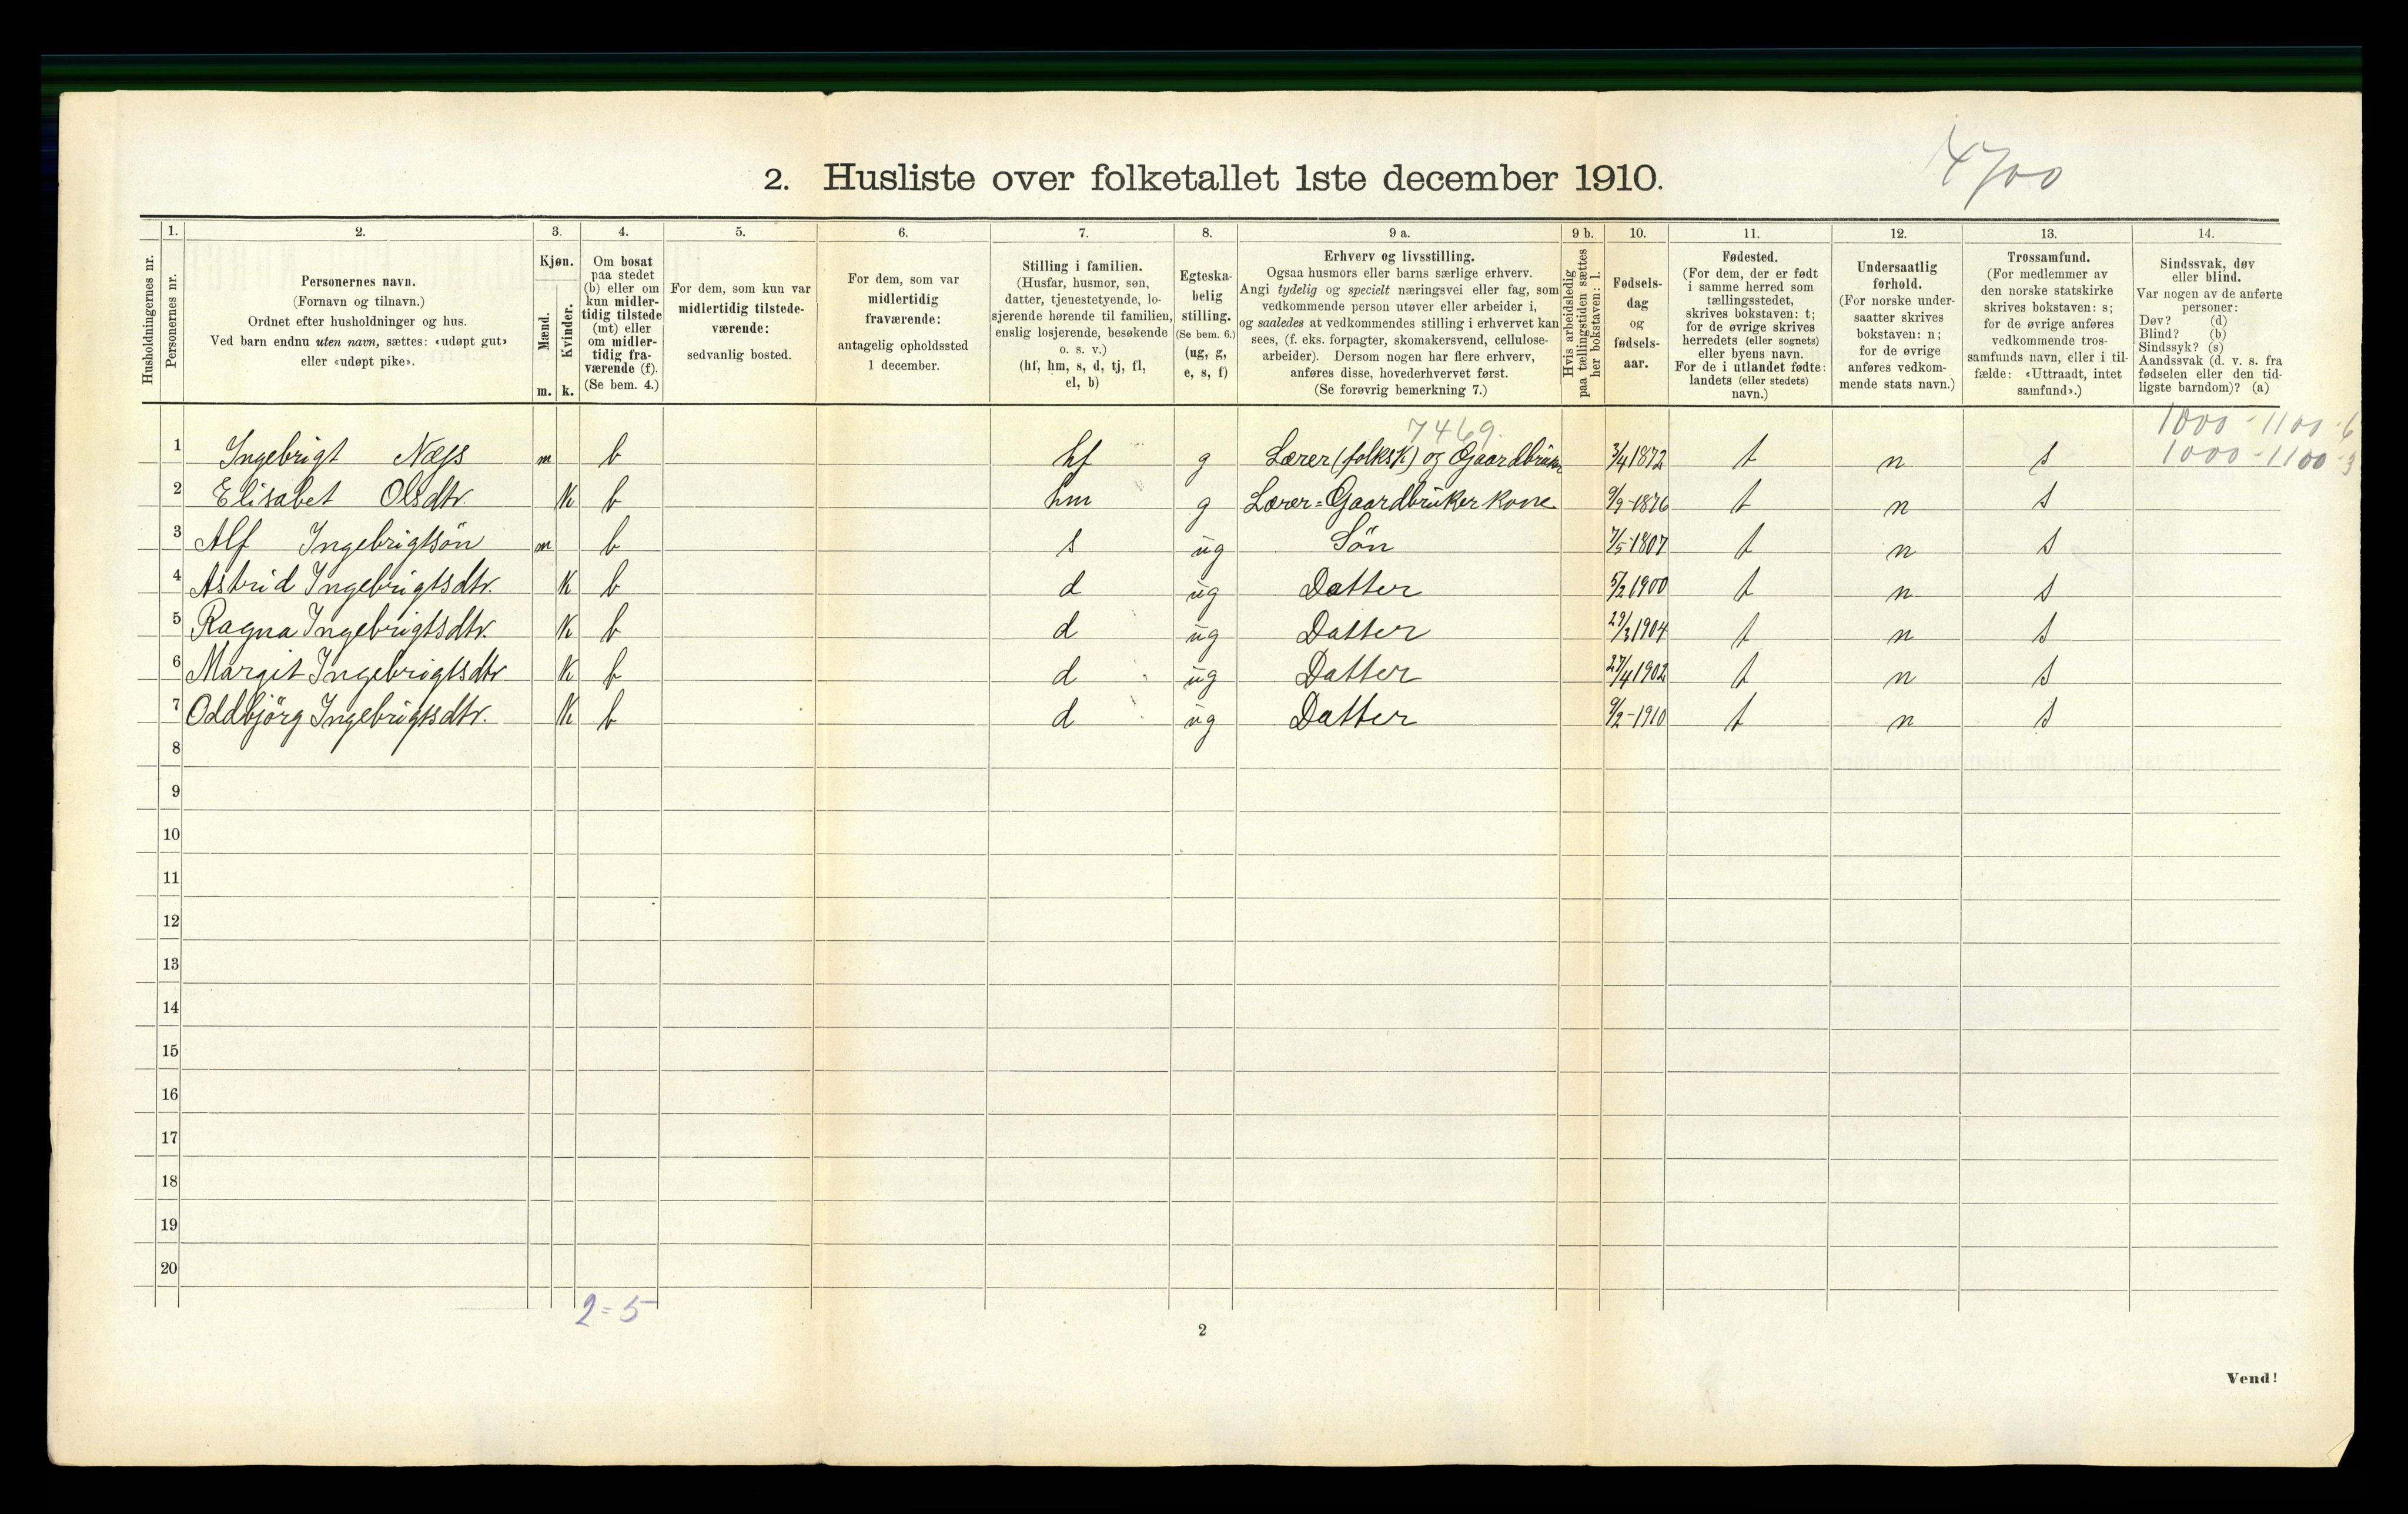 4700
2. Husliste over folketallet 1ste december 1910.
1. 2. 3. 4. 5. 6. 7. 8. 9 a. 9 b. 10. 11. 12. 13. 14.
Husholdningernes nr.
Personernes nr.
Personernes navn.
(Fornavn og tilnavn.)
Ordnet efter husholdninger og hus.
Ved barn endnu uten navn, sættes: «udøpt gut»
eller «udøpt pike».
Kjøn.
Mænd.
Kvinder.
m. k.
Om bosat
paa stedet
(b) eller om
kun midler-
tidig tilstede
(mt) eller
om midler-
tidig fra-
værende (f).
(Se bem. 4.)
For dem, som kun var
midlertidig tilstede-
værende:
sedvanlig bosted.
For dem, som var
midlertidig
fraværende:
antagelig opholdssted
1 december.
Stilling i familien.
(Husfar, husmor, søn,
datter, tjenestetyende, lo-
sjerende hørende til familien,
enslig losjerende, besøkende
o. s. v.)
(hf, hm, s, d, tj, fl,
el, b)
Egteska-
belig
stilling.
(Se bem. 6.)
(ug, g,
e, s, f)
Erhverv og livsstilling.
Ogsaa husmors eller barns særlige erhverv.
Angi tydelig og specielt næringsvei eller fag, som
vedkommende person utøver eller arbeider i,
og saaledes at vedkommendes stilling i erhvervet kan
sees, (f. eks. forpagter, skomakersvend, cellulose-
arbeider). Dersom nogen har flere erhverv,
anføres disse, hovederhvervet først.
(Se forøvrig bemerkning 7.)
Hvis arbeidsledig
paa tællingstiden sættes
her bokstaven: l.
Fødsels-
dag
og
fødsels-
aar.
Fødested.
(For dem, der er født
i samme herred som
tællingsstedet,
skrives bokstaven: t;
for de øvrige skrives
herredets (eller sognets)
eller byens navn.
For de i utlandet fødte:
landets (eller stedets)
navn.)
Undersaatlig
forhold.
(For norske under-
saatter skrives
bokstaven: n;
for de øvrige
anføres vedkom-
mende stats navn.)
Trossamfund.
(For medlemmer av
den norske statskirke
skrives bokstaven: s;
for de øvrige anføres
vedkommende tros-
samfunds navn, eller i til-
fælde: «Uttraadt, intet
samfund».)
Sindssvak, døv
eller blind.
Var nogen av de anførte
personer:
Døv? (d)
Blind? (b)
Sindssyk? (s)
Aandssvak (d. v. s. fra
fødselen eller den tid-
ligste barndom)? (a)
7469. 1000-1100-6
1 Ingebrigt Næss m b hf g Lærer (folksk) og Gaardbruker 3/4 1872 t n s 1000-1100-3
2 Elisabet Olsdtr. K b hm g Lærer=Gaardbruker kone 9/9-1876 t n s
3 Alf Ingebrigtsön m b s ug Sön 7/5-1807 t n s
4 Astrid Ingebrigtsdtr. K b d ug Datter 5/2 1900 t n s
5 Ragna Ingebrigtsdtr. K b d ug Datter 1904 t n s
6 Margit Ingebrigtsdtr K b d ug Datter 27/4 1902 t n s
7 Oddbjörg Ingebrigtsdtr. K b d ug Datter 9/2-1910 t n s
8
9
10
11
12
13
14
15
16
17
18
19
20
2=5
2
Vend!